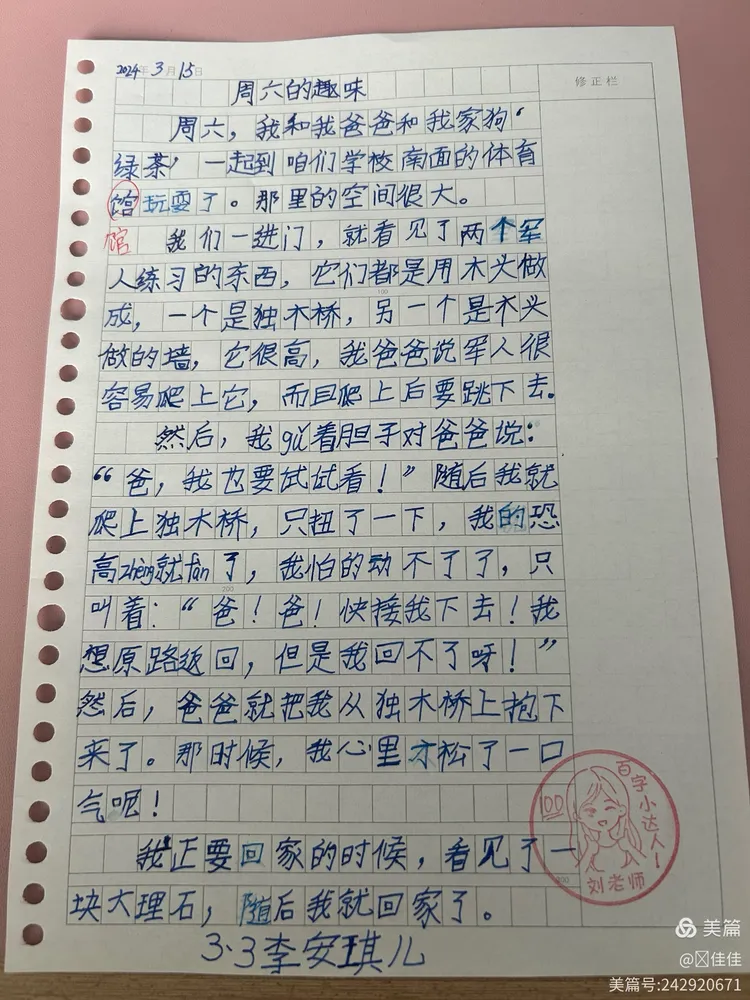 2024年3月15日
修正栏
周六的趣味
周六，我和我爸爸和我家狗“
绿茶”一起到咱们学校南面的体育
馆玩耍了。那里的空间很大。
馆
我们一进门，就看见了两个军
人练习的东西，它们都是用木头做
成，一个是独木桥，另一个是木头
做的墙，它很高，我爸爸说军人很
容易爬上它，而且爬上后要跳下去。
然后，我gǔ着胆子对爸爸说：
“爸，我也要试试看！”随后我就
爬上独木桥，只扭了一下，我的恐
高zhèng就fàn了，我怕的动不了了，只
叫着：“爸！爸！快接我下去！我
想原路返回，但是我回不了呀！”
然后，爸爸就把我从独木桥上抱下
来了。那时候，我心里才松了一口
气呢！
我正要回家的时候，看见了一
块大理石，随后我就回家了。
3.3李安琪儿
100
百字小达人！
刘老师
美篇
佳佳
美篇号:242920671